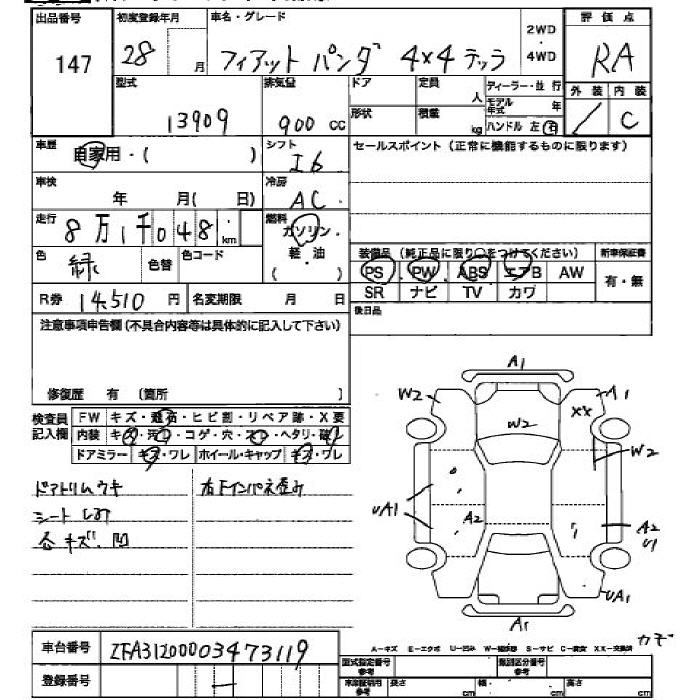 出品番号 初度登録年月 車名・グレード 2WD・4WD 評価点
147 28 月 フィアット パンダ 4×4 テッラ RA
型式 排気量 ドア 定員 人 ディーラー・並行 外装 内装
13909 900 cc 形状 積載 kg モデル年式 年 / C
ハンドル 左 右
車歴 自家用・( ) シフト I6 セールスポイント(正常に機能するものに限ります)
車検 年 月( 日) 冷房 AC
走行 8万1千048km 燃料 ガソリン・軽油( )
色 緑 色替 色コード
装備品(純正品に限り○をつけてください) 新車保証書
PS PW ABS エアB AW 有・無
SR ナビ TV カワ
R券 14,510 円 名変期限 月 日
後日品
注意事項申告欄(不具合内容等は具体的に記入して下さい)
修復歴 有 (箇所 )
検査員記入欄 FW キズ・飛石・ヒビ割・リペア跡・X要
内装 キズ・汚れ・コゲ・穴・スレ・ヘタリ・破れ
ドアミラー キズ・ワレ ホイール・キャップ キズ・ワレ
ドアトリムウキ 右下インパネ歪み
シート
キズ、凹
A1
W2 A1
XX
W2
W2
UA1 A2 A2
U1
UA1
A1
カモ
A-キズ E-エクボ U-凹み W-補修跡 S-サビ C-腐食 XX-交換済
車台番号 ZFA31200003473119
型式指定番号 参考 類別区分番号 参考
登録番号 車庫証明用 参考 長さ cm 幅 cm 高さ cm